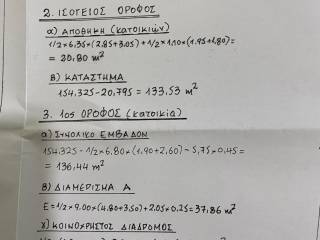 2. ΙΣΟΓΕΙΟΣ ΟΡΟΦΟΣ
α) ΑΠΟΘΗΚΗ (κατοικιών)
1/2×6,35×(2,85+3,05)+1/2×1,10×(1,95+1,80)=
= 20,80 m²
β) ΚΑΤΑΣΤΗΜΑ
154,325-20,795 = 133,53 m²
3. 1ος ΟΡΟΦΟΣ (κατοικία)
α) ΣΥΝΟΛΙΚΟ ΕΜΒΑΔΟΝ
154,325-1/2×6,80×(1,90+2,60)-5,75×0,45=
= 136,44 m²
β) ΔΙΑΜΕΡΙΣΜΑ Α
Ε=1/2×9,00×(4,80+3,50)+2,05×0,25=37,86 m²
γ) ΚΟΙΝΟΧΡΗΣΤΟΣ ΔΙΑΔΡΟΜΟΣ